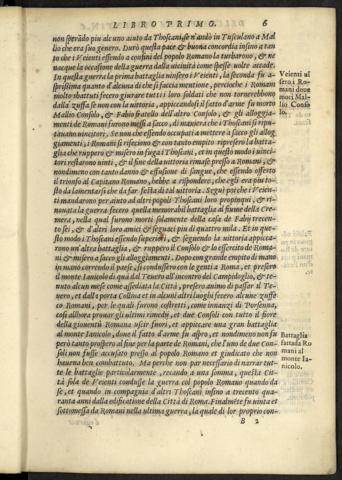 LIBRO PRIMO. 6
non sperãdo piu alcuno aiuto da Thoscani, se n'andò in Tusculano a Mal
lio che era suo genero. Durò questa pace & buona concordia insino a tan
to che i Veienti essendo a confini del popolo Romano la turbarono, & ne
nacque la discordia per cagione dalla uicinità come spesse uolte accade.
In questa guerra la prima battaglia uinsero i Veienti, la seconda fu a-
sprissima quanto d'alcuna di che si faccia mentione, percioche i Romani
molto sbattuti fecero giurare tutti i loro soldati che non tornerebbono
dalla zuffa se non con la uittoria, appiccandosi il fatto d'arme fu morto
Mallio Consolo, & Fabio fratello dell'altro Consolo, & gli alloggia-
menti de Romani furono messi a sacco, di maniera che i Thoscani si ripu
tauano uincitori. Se non che essendo occupati a mettere à sacco gli allog
giamenti, i Romani si rifecino & con tanto empito ripresero la batta-
glia che ruppero & misero in fuga i Thoscani, et in questo modo i uinci-
tori restarono uinti, & il fine della uittoria rimase presso a Romani, &
nondimeno con tanto danno & effusione di sangue, che essendo offerto
il trionfo al Capitano Romano, hebbe a rispondere, che egli era piu to-
sto da lamentarsi che da far festa di tal uittoria. Seguì poi che i Veien
ti mandarono per aiuto ad altri popoli Thoscani loro propinqui, & ri-
nouata la guerra fecero quella memorabil battaglia al fiume della Cre
mera, nella qual furono morti solamente della casa de Fabij trecen-
to sei, & d'altri loro amici & seguaci piu di quattro mila. Et in que-
sto modo i Thoscani essendo superiori, & seguendo la uittoria appicca
rono un'altra battaglia, & ruppero il Consolo & lo essercito de Roma-
ni & misero a sacco gli alloggiamenti. Dopo con grande empito di mano
in mano correndo il paese, si condussero con le genti a Roma, et presero
il monte Ianicolo di quà dal Teuero all'incontro del Campidoglio, & te-
nuto alcun mese come assediata la Città, presero animo di passar il Te-
uero, et dall'porta Collina et in alcuni altri luoghi fecero alcune zuffe
co Romani, per le quali furono costretti, come innanzi di Porsenna,
cosi allhora pronar gli ultimi rimedij, et due Consoli con tutto il fiore
della giouentù Romana uscir fuori, et appiccare una gran battaglia
al monte Ianicolo, doue il fatto d'arme fu aspro, et nondimeno non fu
però tanto prospero al fine per la parte de Romani, che l'uno de due Con-
soli non fusse accusato presso al popolo Romano et giudicato che non
haueua ben combattuto. Ma perche non par necessario di narrar tut-
te le battaglie particolarmente, recando a una somma, questa Cit-
tà sola de Veienti condusse la guerra col popolo Romano quando da
se, et quando in compagnia d'altri Thoscani insino a trecento qua-
ranta anni dalla edificatione della Città di Roma. Finalmẽte fu uinta et
sottomessa da Romani nella ultima guerra, la quale di lor proprio con-
B 2
Veienti ul
sero i Ro-
mani doue
morì Mal-
lio Conso
lo.
Battaglia
fattada Ro
mani al
monte Ia-
nicolo.